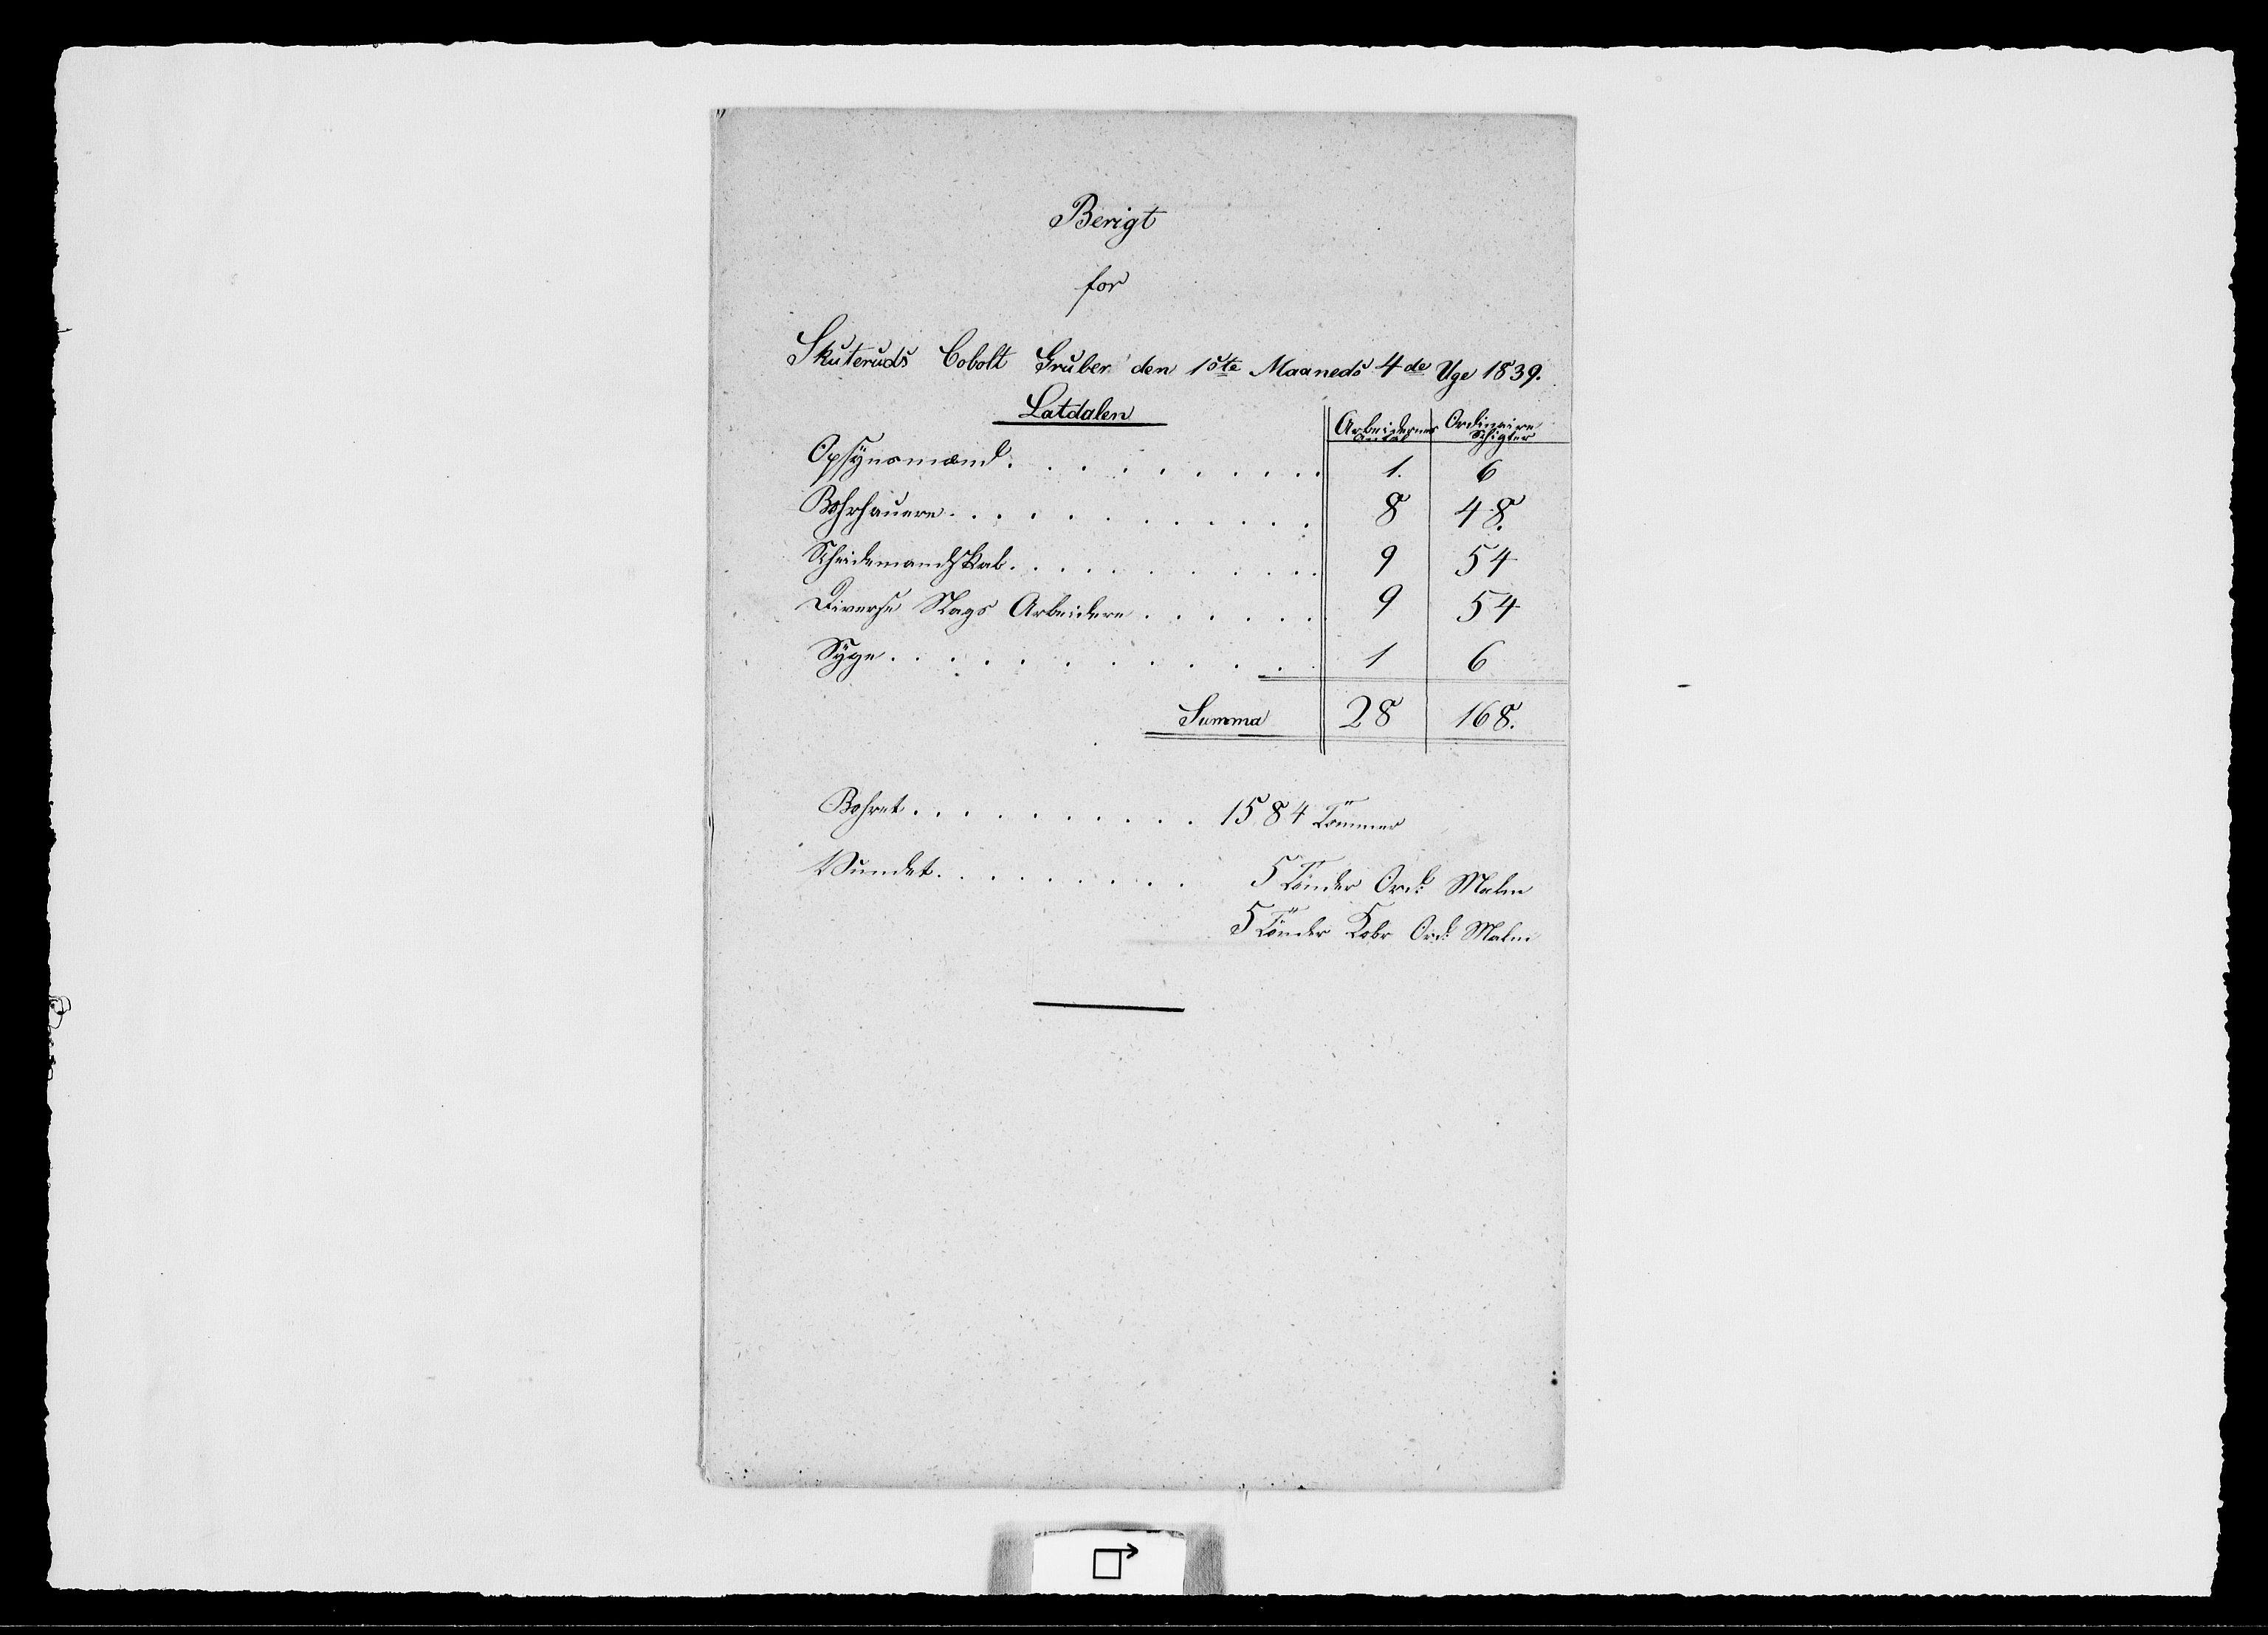 Berigt
for
Skuteruds Cobolt Gruber den 1ste Maaneds 4de Uge 1839.
Latdalen
Arbeidernes Antal Ordinaire Schigter
Opsÿnsmænd . . . . . . . . . 1. 6
Bohrhauere . . . . . . . . . . 8 48.
Scheidemandskab . . . . . . . . . 9 54
Diverse Slags Arbeidere . . . . . . 9 54
Sÿge . . . . . . . . . . 1 6
Summa 28 168.
Bohret . . . . . . . . . . 1584 Tömmer
Vundet . . . . . . . . 5 Tönder Ord: Malm
5 Tönder Kobr Ord: Malm